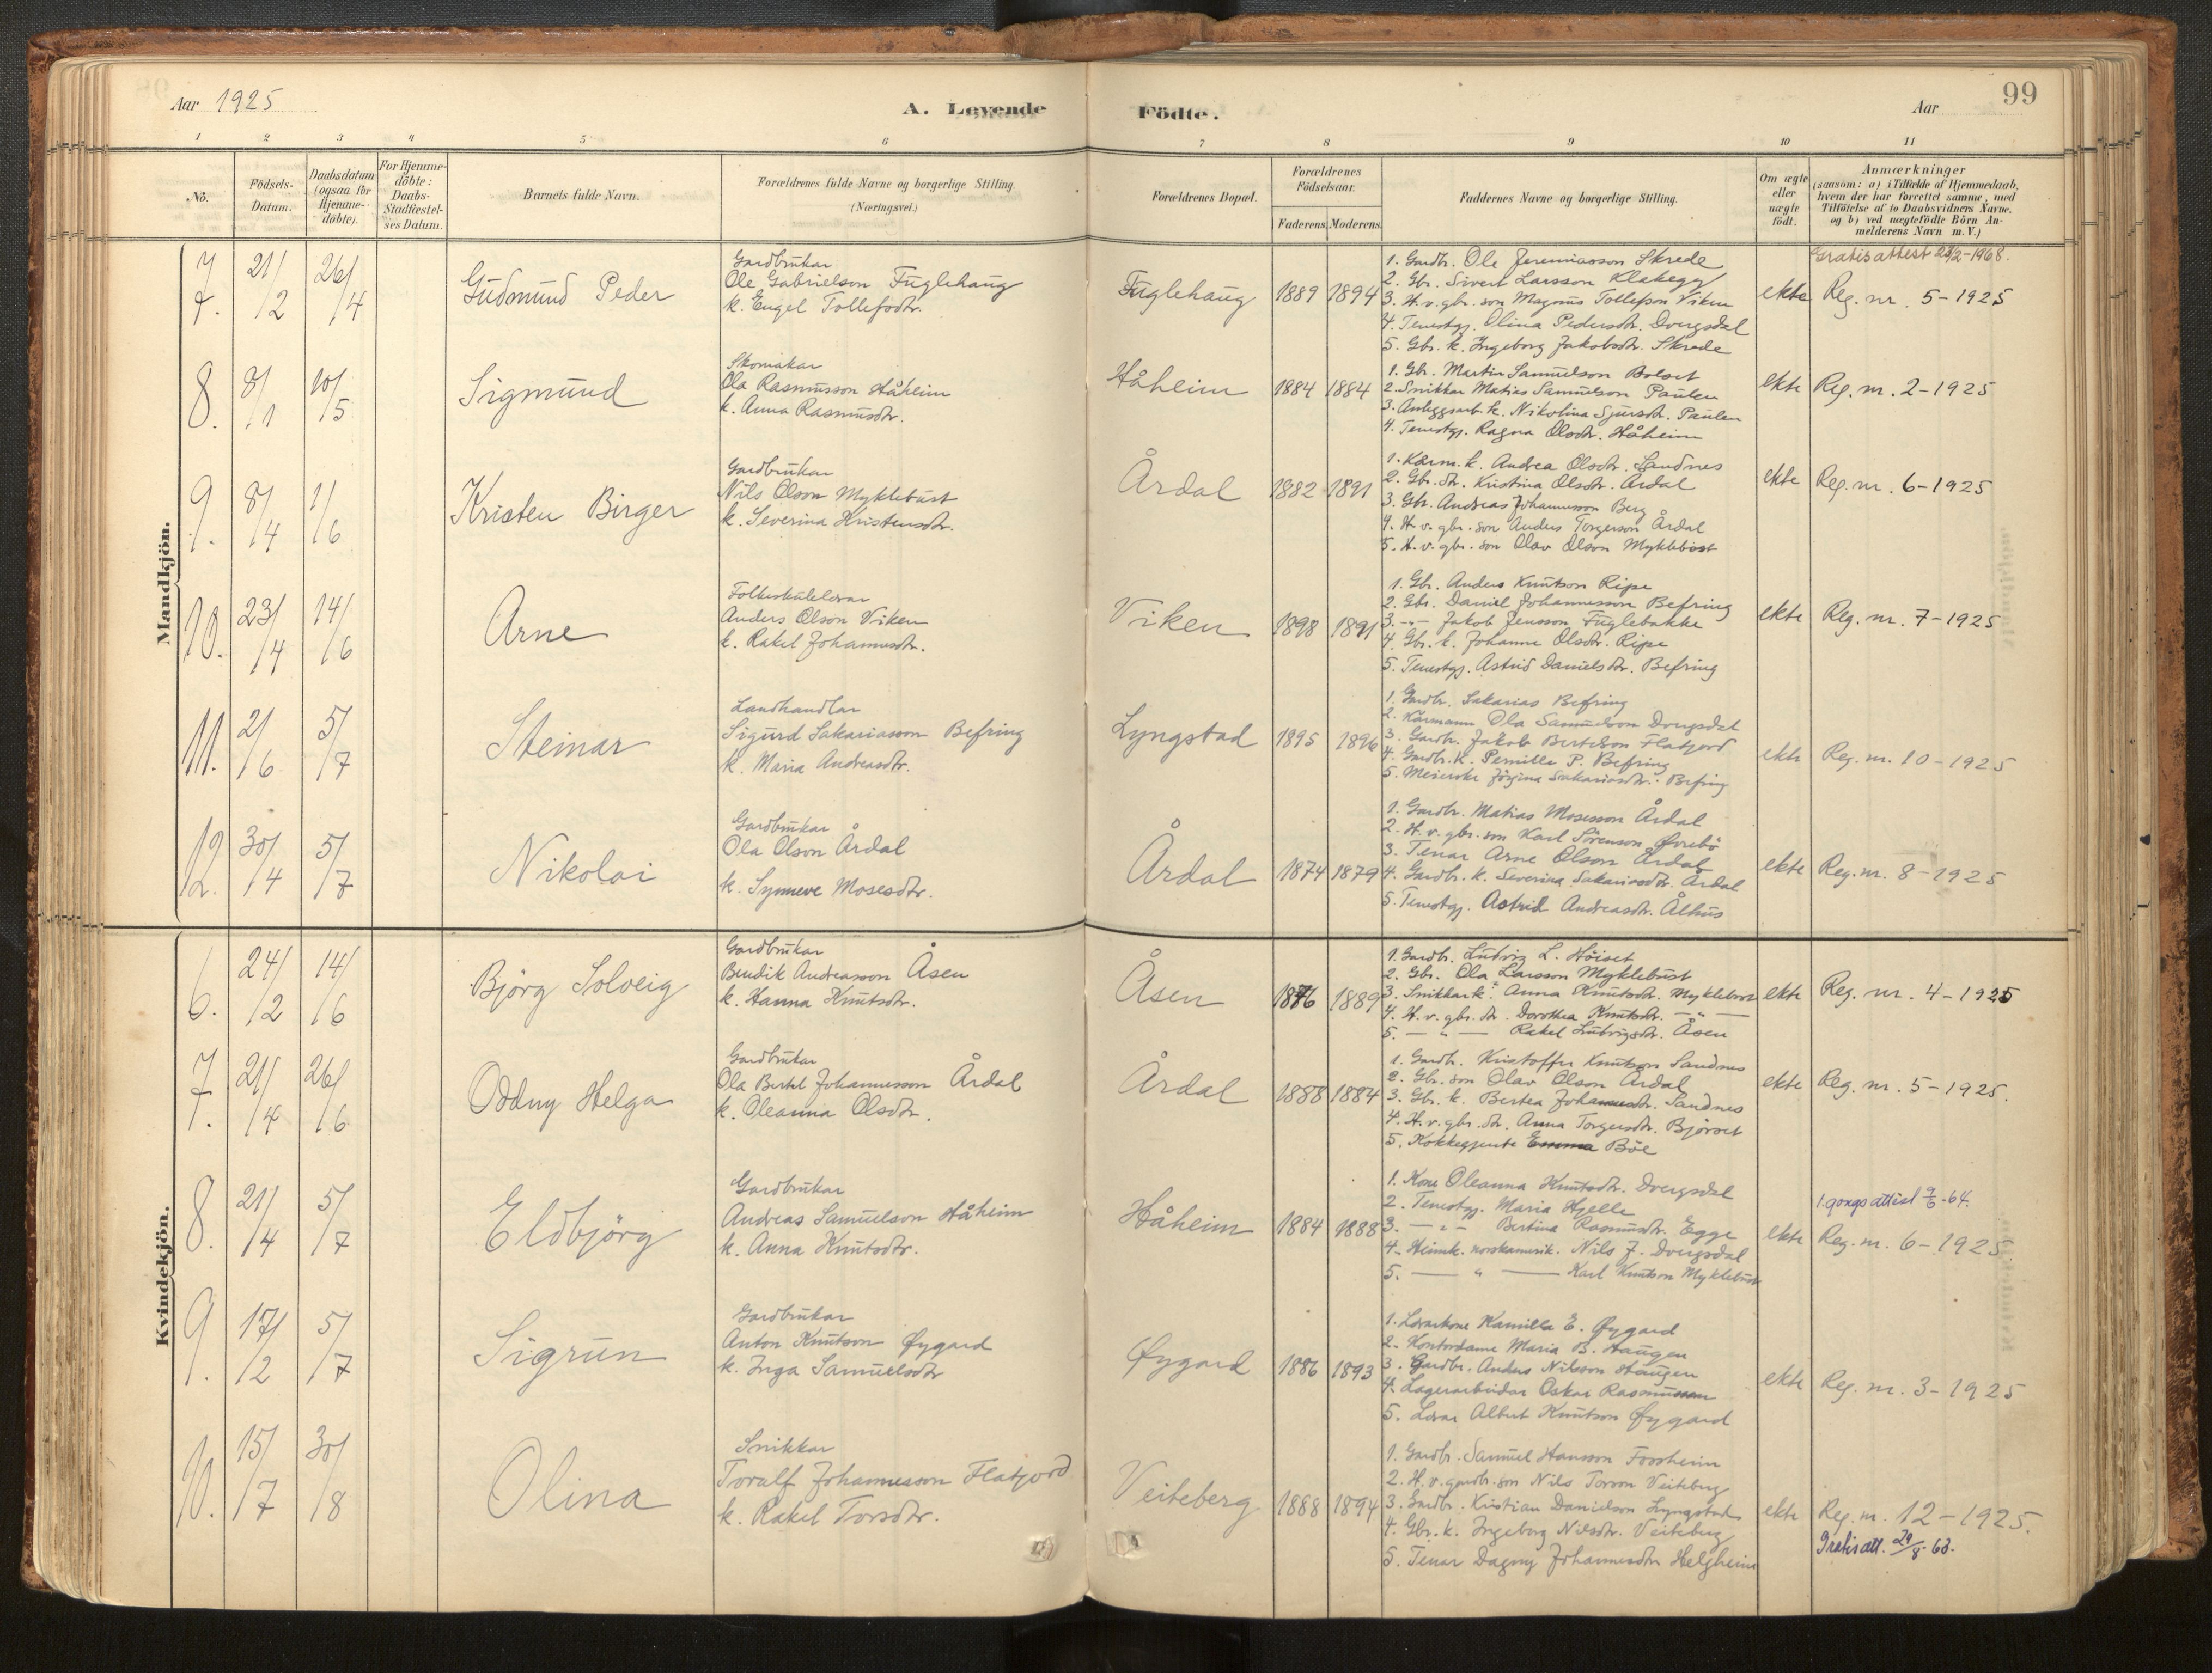 Aar 1925
A. Levende
Födte.
Aar
99
1 2 3 4 5 6 7 8 9 10 11
No.
Födsels-
Datum.
Daabsdatum
(ogsaa for
Hjemme-
döbte).
For Hjemme-
döbte:
Daabs-
Stadfæstel-
ses Datum.
Barnets fulde Navn.
Forældrenes fulde Navne og borgerlige Stilling.
(Næringsvei.)
Forældrenes Bopæl.
Forældrenes
Födselsaar.
Faderens. Moderens.
Faddernes Navne og borgerlige Stilling.
Om ægte
eller
uægte
født.
Anmærkninger
(saasom: a) i Tilfælde af Hjemmedaab,
hvem der har forrettet samme, med
Tilföielse af to Daabsvidners Navne,
og b) ved uægtefödte Börn An-
melderens Navn m. V.)
Mandkjön.
7. 21/2 26/4 Gudmund Peder
Gardbrukar
Ole Gabrielson Fuglehaug
k. Engel Tollefsdtr.
Fuglehaug 1889 1894
1. Gardb. Ole Jeremiasson Skrede
2. Gbr. Sivert Larsson Klakegg
3. H.v. gbr. son Magnus Tollefson Viken
4. Tenestgj. Olina Pedersdtr. Dvergsdal
5. Gbr. k. Ingeborg Jakobsdtr. Skrede
ekte
Gratisattest 23/2-1968.
Reg. nr. 5-1925
8. 8/1 10/5 Sigmund
Skomakar
Ola Rasmusson Håheim
k. Anna Rasmusdtr.
Håheim 1884 1884
1. Gbr. Martin Samuelson Bolset
2. Snikkar Matias Samuelson Paulen
3. Anleggsarb. k. Nikolina Sjursdtr. Paulen
4. Tenestgj. Ragna Olsdtr. Håheim
ekte Reg. nr. 2-1925
9. 8/4 1/6 Kristen Birger
Gardbrukar
Nils Olson Myklebust
k. Severina Kristensdtr.
Årdal 1882 1891
1. Kårm. k. Andrea Olsdtr. Sandnes
2. Gbr. dtr. Kristina Olsdtr. Årdal
3. Gbr. Andreas Johannesson Berg
4. H.v. gbr. son Anders Torgerson Årdal
5. H.v. gbr. son Olav Olson Myklebust
ekte Reg. nr. 6-1925
10. 23/4 14/6 Arne
Folkeskulelærar
Anders Olson Viken
k. Rakel Johannesdtr.
Viken 1898 1891
1. Gbr. Anders Knutson Ripe
2. Gbr. Daniel Johannesson Befring
3. -"- Jakob Jensson Fuglebakke
4. Gbr. k. Johanne Olsdtr. Ripe
5. Tenestgj. Astrid Danielsdtr. Befring
ekte Reg. nr. 7-1925
11. 2/6 5/7 Steinar
Landhandlar
Sigurd Sakariasson Befring
k. Maria Andreasdtr.
Lyngstad 1895 1896
1. Gardbr. Sakarias Befring
2. Kårmann Ola Samuelson Dvergsdal
3. Gardb. Jakob Bertelson Flatjord
4. Gardbr. k. Pernille P. Befring
5. Meierske Jörgina Sakariasdtr. Befring
ekte Reg. nr. 10-1925
12. 30/4 5/7 Nikolai
Gardbrukar
Ola Olson Årdal
k. Synneve Mosesdtr.
Årdal 1874 1879
1. Gardbr. Matias Mosesson Årdal
2. H.v. gbr. son Karl Sörenson Övrebö
3. Tenar Arne Olson Årdal
4. Gardbr. k. Severina Sakariasdtr. Årdal
5. Tenestgj. Astrid Andreasdtr. Ålhus
ekte Reg. nr. 8-1925
Kvindekjön.
6. 24/2 14/6 Björg Solveig
Gardbrukar
Bendik Andreasson Åsen
k. Hanna Knutsdtr.
Åsen 1876 1889
1. Gardb. Ludvig L. Höiset
2. Gbr. Ola Larsson Myklebust
3. Snikkark. Anna Knutsdtr. Myklebust
4. H.v. gbr. dtr. Dorothea Knutsdtr. -"-
5. -"- Rakel Ludvigsdtr. Åsen
ekte Reg. nr. 4-1925
7. 21/4 26/6 Oddny Helga
Gardbrukar
Ola Bertel Johannesson Årdal
k. Oleanna Olsdtr.
Årdal 1888 1884
1. Gardb. Kristoffer Knutson Sandnes
2. Gbr. son Olav Olson Årdal
3. Gbr. k. Bertea Johannesdtr. Sandnes
4. H.v. gbr. dtr. Anna Torgersdtr. Björset
5. Kokkegjente Emma Böe
ekte Reg. nr. 5-1925.
8. 21/4 5/7 Eldbjörg
Gardbrukar
Andreas Samuelson Håheim
k. Anna Knutsdtr.
Håheim 1884 1888
1. Kone Oleanna Knutsdtr. Dvergsdal
2. Tenestgj. Maria Hjelle
3. -"- Bertina Rasmusdtr. Egge
4. Heimk. norskamerik. Nils J. Dvergsdal
5. -"- Karl Knutson Myklebust
ekte
1.gongs attest 9/6-64.
Reg. nr. 6-1925
9. 17/2 5/7 Sigrun
Gardbrukar
Anton Knutson Øygard
k. Inga Samuelsdtr
Øygard 1886 1893
1. Lærarkone Kamilla E. Øygard
2. Kontordame Maria B. Haugen
3. Gardbr. Anders Nilsson Haugen
4. Lagerarbeidar Oskar Rasmussen
5. Lærar Albert Knutson Øygard
ekte Reg. nr. 3-1925
10. 15/7 30/8 Olina
Snikkar
Toralf Johannesson Flatjord
k. Rakel Torsdtr.
Veiteberg 1888 1894
1. Gardbr. Samuel Hansson Forsheim
2. H.v. gardb. son Nils Torson Veiteberg
3. Gardbr. Kristian Danielson Lyngstad
4. Gbr. k. Ingeborg Nilsdtr. Veiteberg
5. Tenar Dagny Johannesdtr Helgheim
ekte Reg. nr. 12-1925.
Gratis att. 29/8-63.